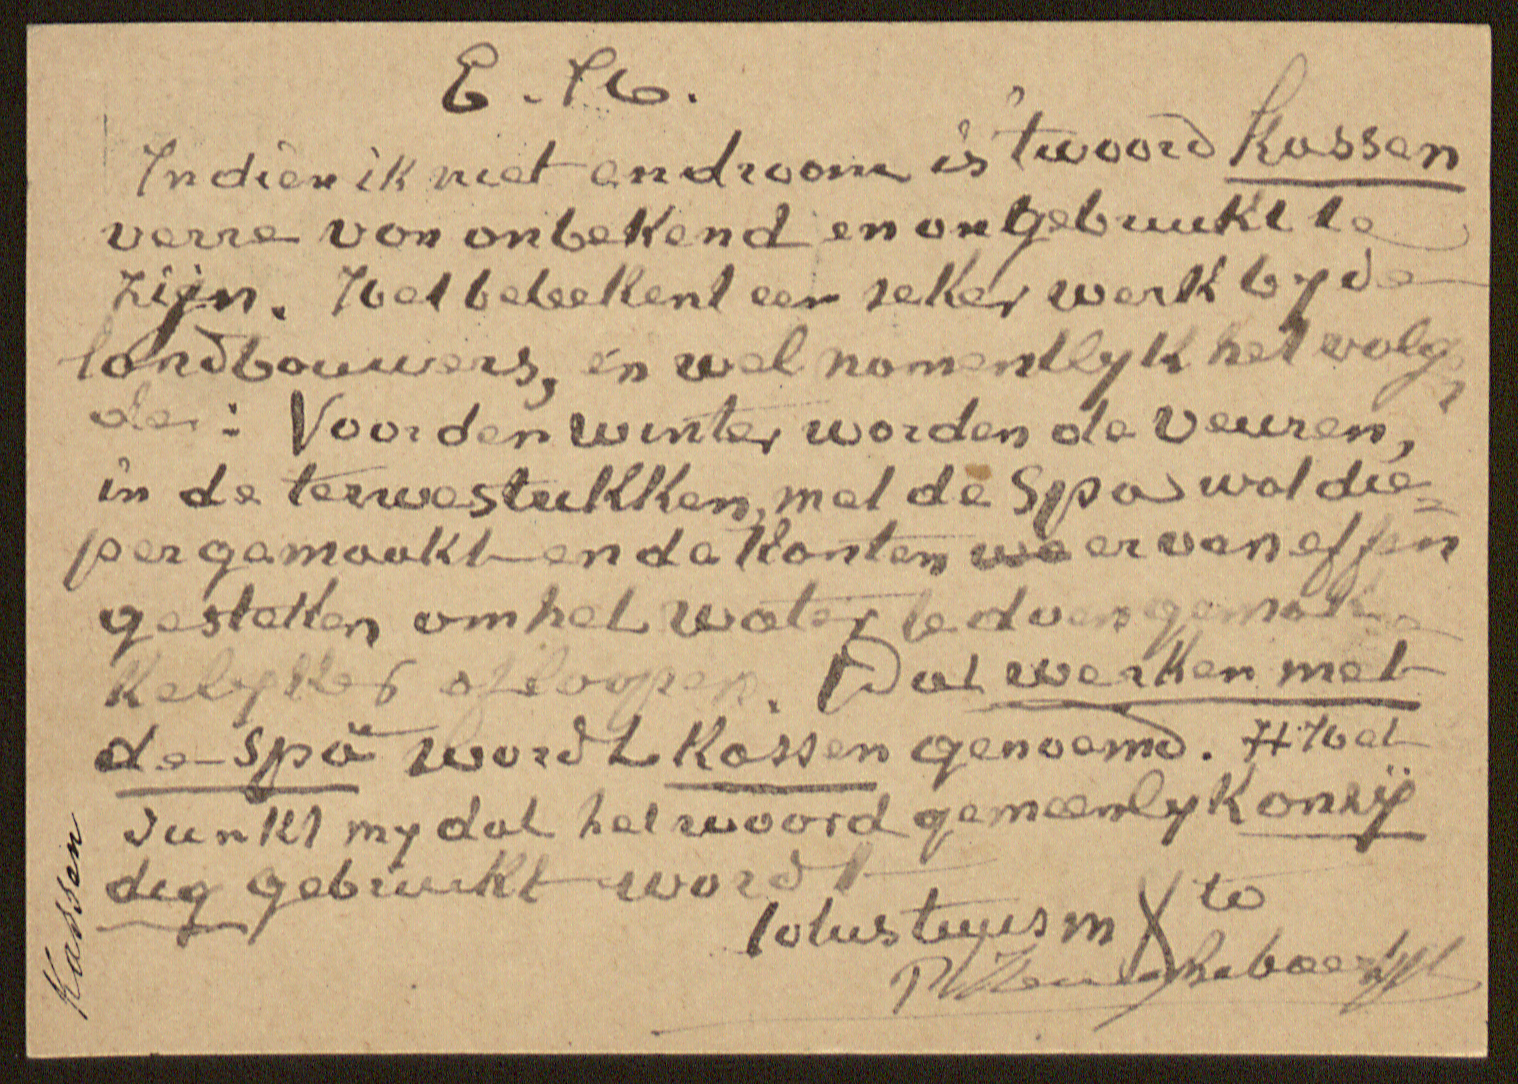 E. H.
Indien ik niet en droom is 't woord Kassen
verre van onbekend en ongebruikt te
zijn. Het beteekent een zeker werk by de
landbouwers, en wel namentlyk het volgen
de: Voor den winter worden de veuren,
in de terwestukken, met de Spa wat die=
per gemaakt en de kanten er van effen
gesteken om het water te doen gemak
kelyker afloopen. Dat werken met
de spâ wordt Kassen genoemd. Het
dunkt my dat het woord gemeenlyk onzij
dig gebruikt wordt
totus tuus in X to
Kassen